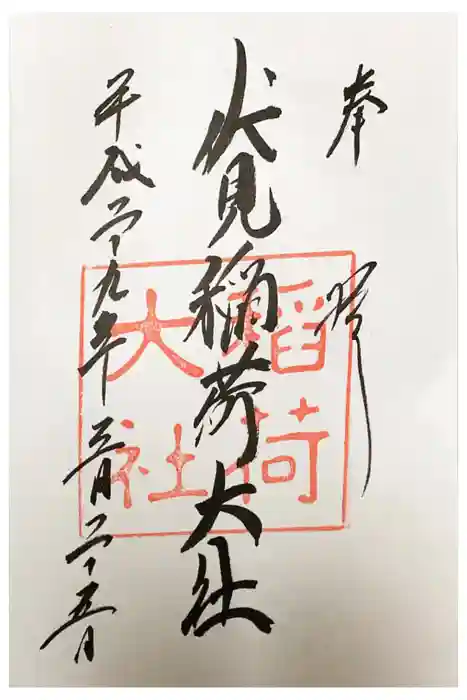 奉拝
伏見稲荷大社
平成二十九年三月二十五日
稻荷
大社